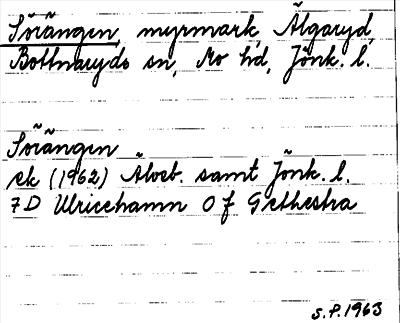 Sörängen, myrmark, Älgaryd,
Bottnaryds sn, Mo hd, Jönk. l.
Sörängen
ek (1962) Älvsb. samt Jönk. l.
7D Ulricehamn 0 f Grethestra
S.P. 1963